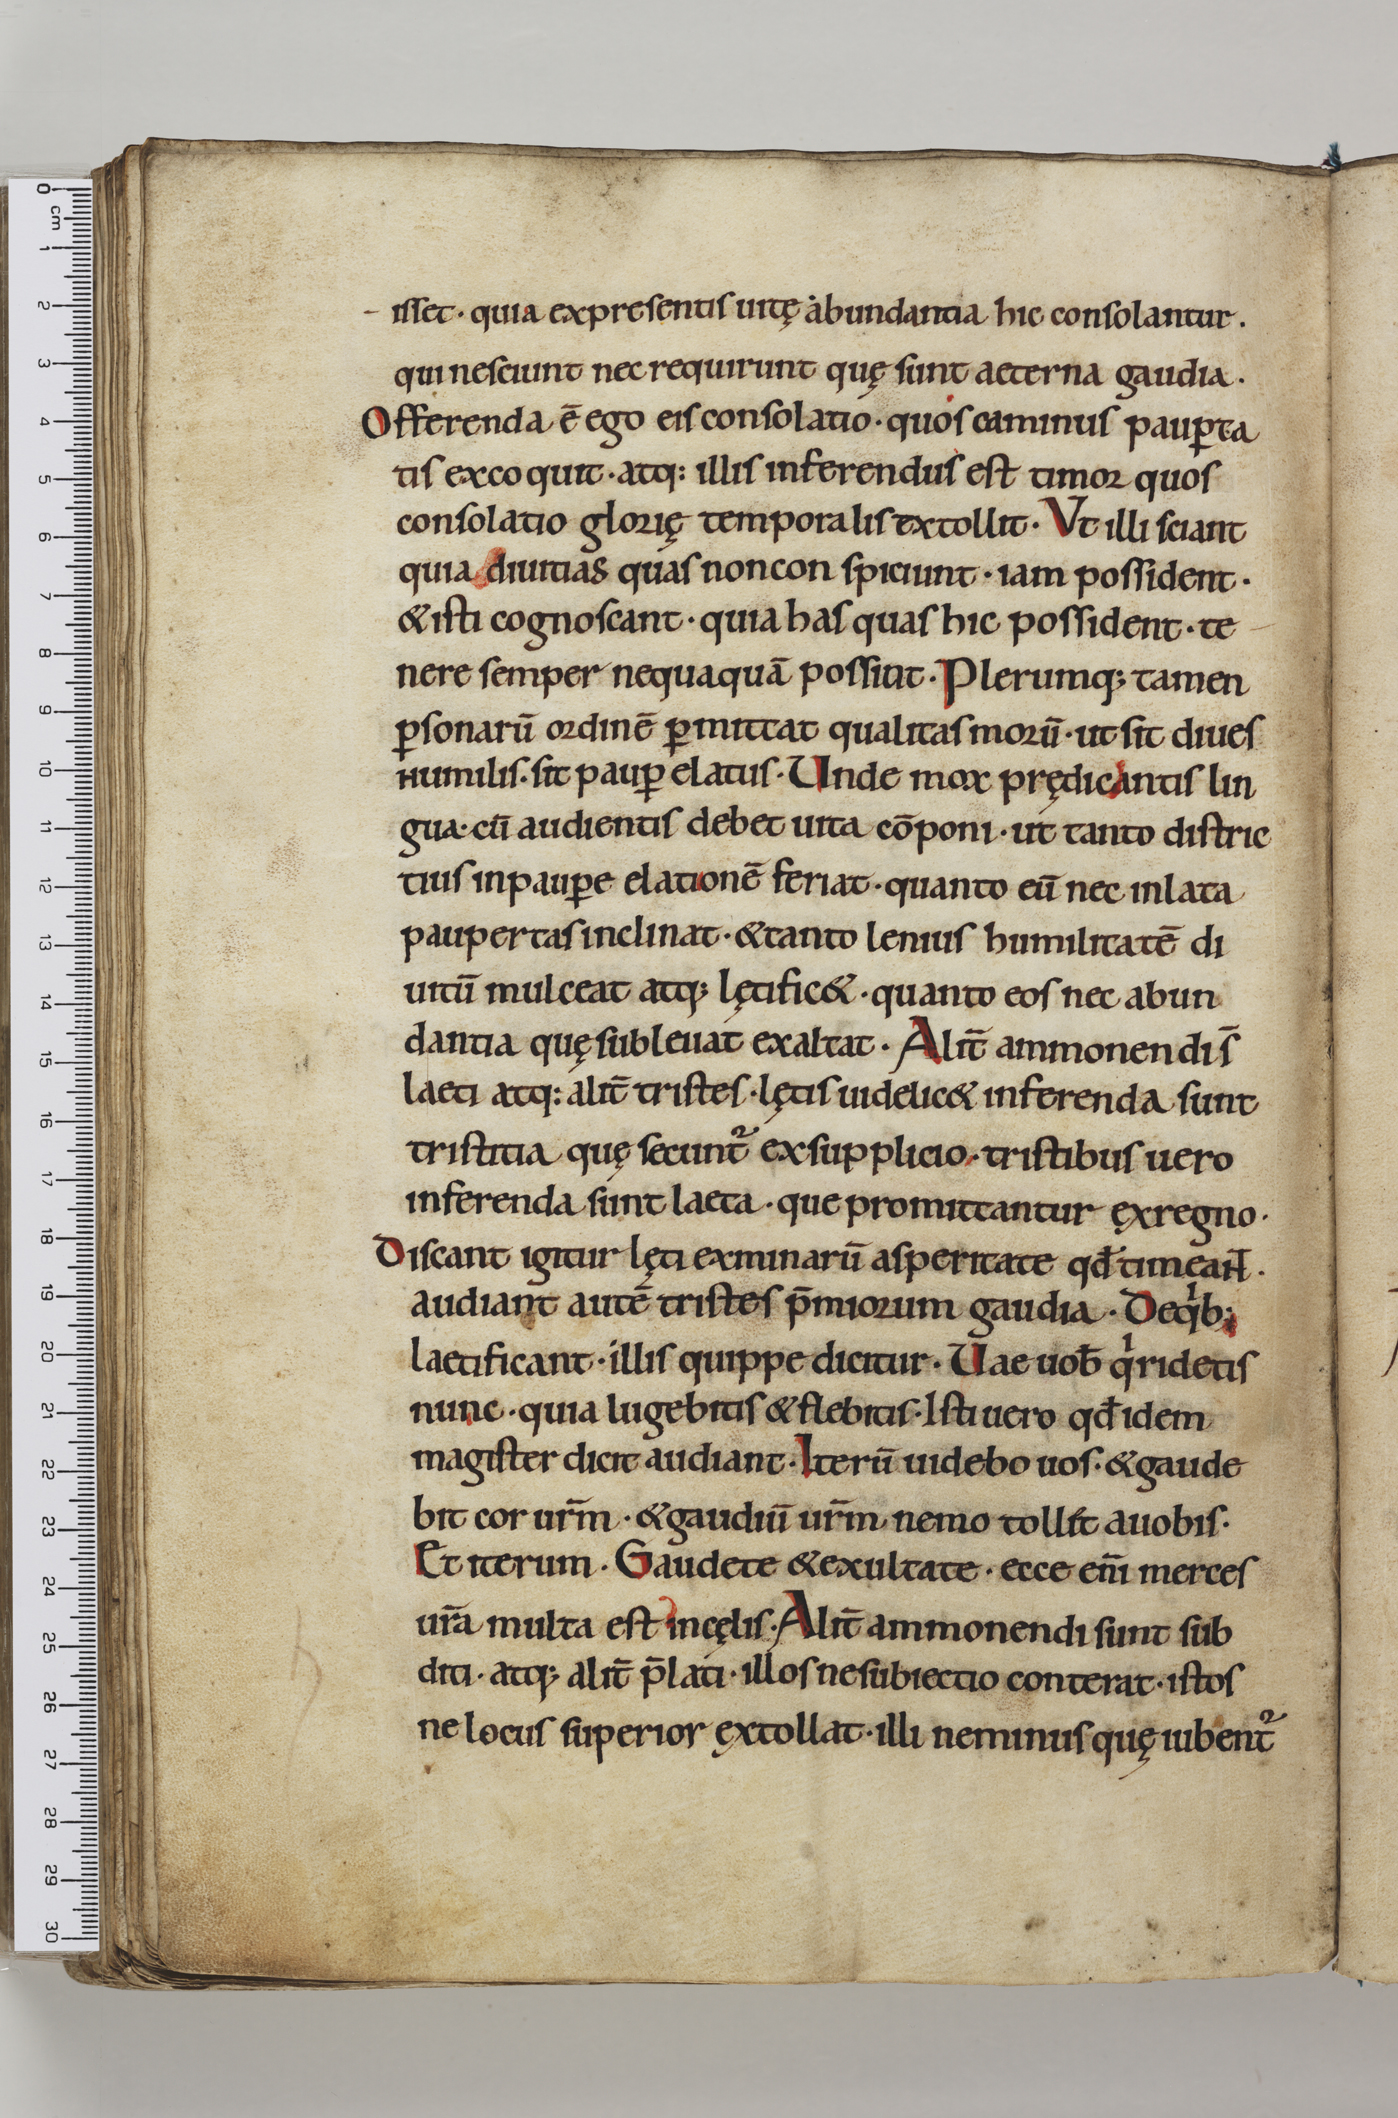 isset · quia expresentis uitę abundantia hic consolantur .
qui nesciunt nec requirunt quę sunt aeterna gaudia .
Offerenda ē ego eis consolatio · quos caminus paup̱ta
tis excoquit · atq: illis inferendus est timor quos
consolatio glorię temporalis extollit . Vt illi sciant
quia diuitias quas non conspiciunt · iam possident .
& isti cognoscant · quia has quas hic possident · te
nere semper nequaquā possint . Plerumq; tamen
p̱sonarū ordinē p̱mittat qualitas morū · ut sit diues
humilis · sit paup̱ elatus . Unde mox prędicantis lin
gua · cū audientis debet uita cōponi · ut tanto distric
tius inpaup̱e elationē feriat · quanto eū nec inlata
paupertas inclinat · & tanto lenius humilitatē di
uitū mulceat atq; lętific& · quanto eos nec abun
dantia quę subleuat exaltat . Alit̄ ammonendi s̄
laeti atq: alit̄ tristes · lętis uidelic& inferenda sunt
tristitia quę secunt᷑ exsupplicio · tristibus uero
inferenda sunt laeta · que promittantur ęxregno .
Discant igitur lęti exminarū asperitate qđ timeant .
audiant autē tristes p̄miorum gaudia . Deqib;
laetificant · illis quippe dicitur . Uae uob̄ qi ridetis
nunc · quia lugebitis & flebitis . Isti uero qđ idem
magister dicit audiant . Iterū uidebo uos · & gaude
bit cor ur̄m · & gaudiū ur̄m nemo tollit auobis .
Et iterum . Gaudete & exultate · ecce eni̅ merces
ur̄a multa est incęlis . Alit̄ ammonendi sunt sub
diti · atq; alit̄ p̄lati · illos ne subiectio conterat · istos
ne locus superior ęxtollat · illi ne minus quę iubent᷑
0 cm
1
2
3
4
5
6
7
8
9
10
11
12
13
14
15
16
17
18
19
20
21
22
23
24
25
26
27
28
29
30